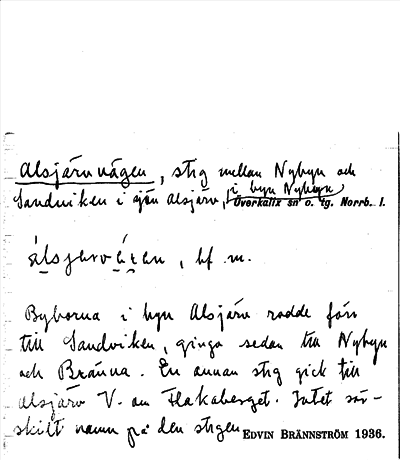 Alsjärvvägen, stig mellan Nybyn och
i byn Nybyn
Sandviken i sjön Alsjärv, Överkalix sn o. tg. Norrb. l.
bf m.
Byborna i byn Alsjärv rodde förr
till Sandviken, gingo sedan till Nybyn
och Bränna. En annan stig gick till
Alsjärv V. om Flakaberget. Intet sär-
skilt namn på den stigen
EDVIN BRÄNNSTRÖM 1936.